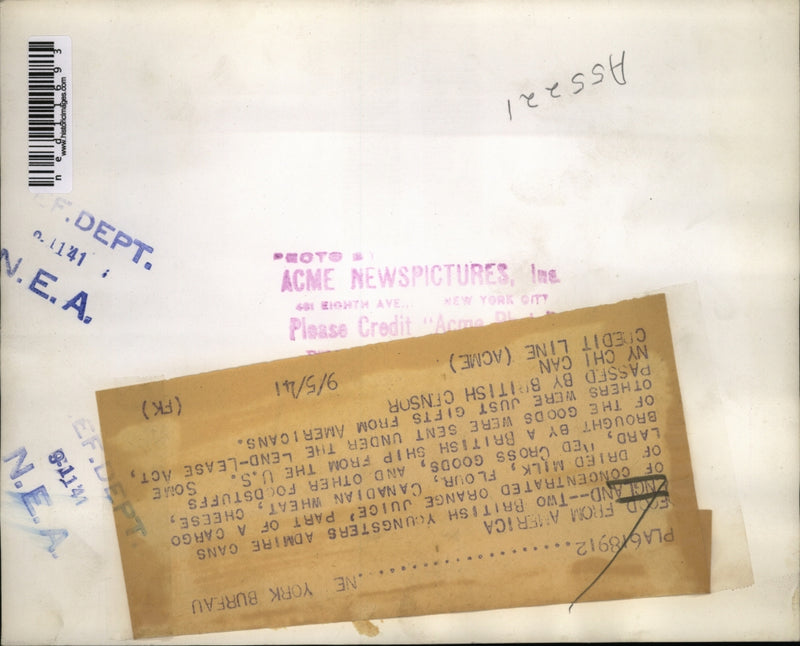 ned11693
www.historicimages.com
ASS221
EF. DEPT.
9-1141
N.E.A.
PHOTO BY
ACME NEWSPICTURES, Inc.
461 EIGHTH AVE... NEW YORK CITY
Please Credit "Acme
EF. DEPT.
9-1141
N.E.A.
PLA618912...................NE YORK BUREAU
FOOD FROM AMERICA
ENGLAND--TWO BRITISH YOUNGSTERS ADMIRE CANS
OF CONCENTRATED ORANGE JUICE, PART OF A CARGO
OF DRIED MILK, FLOUR, CANADIAN WHEAT, CHEESE,
LARD, RED CROSS GOODS, AND OTHER FOODSTUFFS
BROUGHT BY A BRITISH SHIP FROM THE U.S. SOME
OF THE GOODS WERE SENT UNDER THE LEND-LEASE ACT,
OTHERS WERE JUST GIFTS FROM AMERICANS.
PASSED BY BRITISH CENSOR
NY CHI CAN
CREDIT LINE (ACME) 9/5/41 (FK)